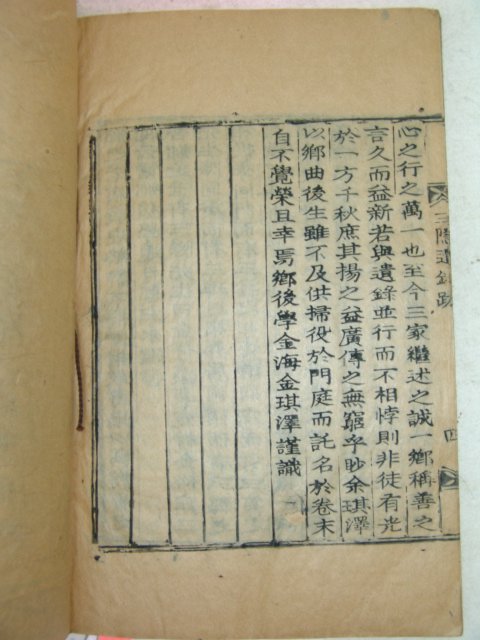 三隱遺錄跋
四
心之行之萬一也至今三家繼述之誠一鄉稱善之
言久而益新若與遺錄並行而不相悖則非徒有光
於一方千秋庶其揚之益廣傳之無窮乎眇余琪澤
以鄉曲後生雖不及供掃役於門庭而託名於卷末
自不覺榮且幸焉鄉後學金海金琪澤謹識